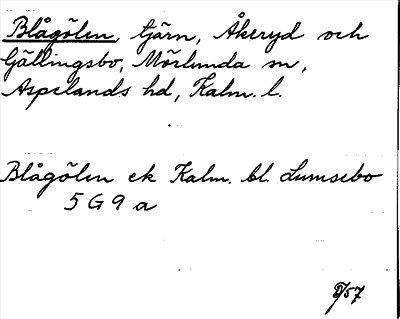 Blågölen, tjärn, Åkeryd och
Gällingsbo, Mörlunda sn,
Aspelands hd, Kalm. l.
Blågölen ek Kalm. bl. Lumsebo
5 G 9 a
/57